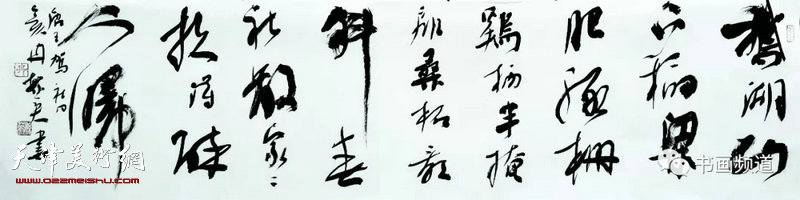 鵝湖山
下稻粱
肥豚柵
鷄栖半掩
扉桑柘影
斜春
社散家々
扶得醉
人歸
唐王駕社日
書
天津美术网
www.022meishu.com
书画频道